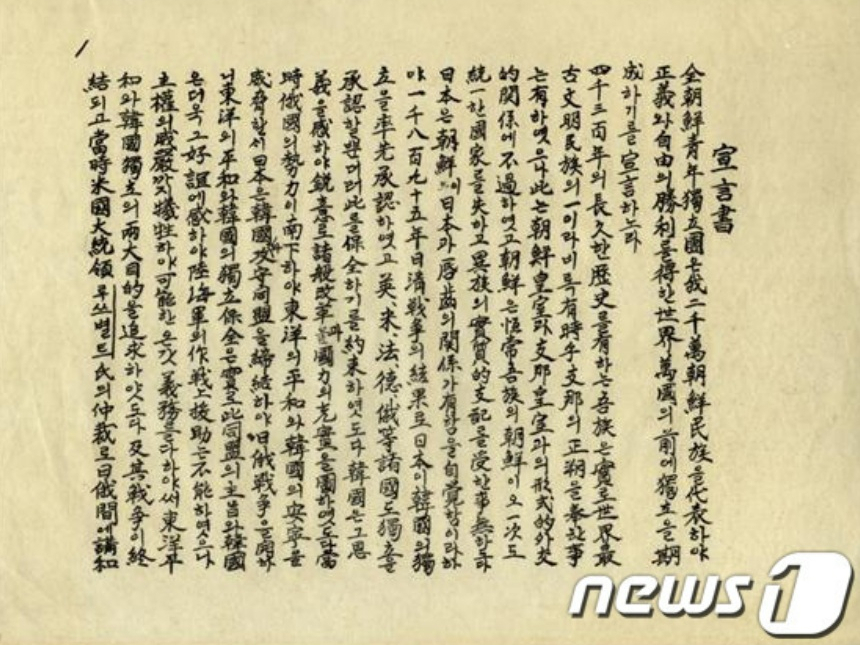 宣言書
全朝鮮青年獨立團은我二千萬朝鮮民族을代表하야
正義와自由의勝利를得한世界萬國의前에獨立을期
成하기를宣言하노라
四千三百年의長久한歷史를有하는吾族은實로世界最
古文明民族의一이라비록有時乎支那의正朔을奉한事
는有하엿으나此는朝鮮皇室과支那皇室과의形式的外交
的關係에不過하엿고朝鮮은恒常吾族의朝鮮이오一次도
統一한國家를失하고異族의實質的支配를受한事無하도다
日本은朝鮮이日本과唇齒의關係가有함을自覺함이라하
야一千八百九十五年日淸戰爭의結果로日本이韓國의獨
立을率先承認하엿고英、米、法、德、俄等諸國도獨立을
承認할뿐더러此를保全하기를約束하엿도다韓國은그恩
義을感하야銳意로諸般改革과國力의充實을圖하엿도다當
時俄國의勢力이南下하야東洋의平和와韓國의安寧을
威脅할새日本은韓國과攻守同盟을締結하야日俄戰爭을開하
니東洋의平和와韓國의獨立保全은實로此同盟의主旨와韓國
은더욱그好誼에感하야陸海軍의作戰上援助는不能하엿으나
主權의威嚴까지犧牲하야可能한온갓義務를다하야써東洋平
和와韓國獨立의兩大目的을追求하얏도다及其戰爭이終
結되고當時米國大統領루쓰벨트氏의仲裁로日俄間에講和
1
news1